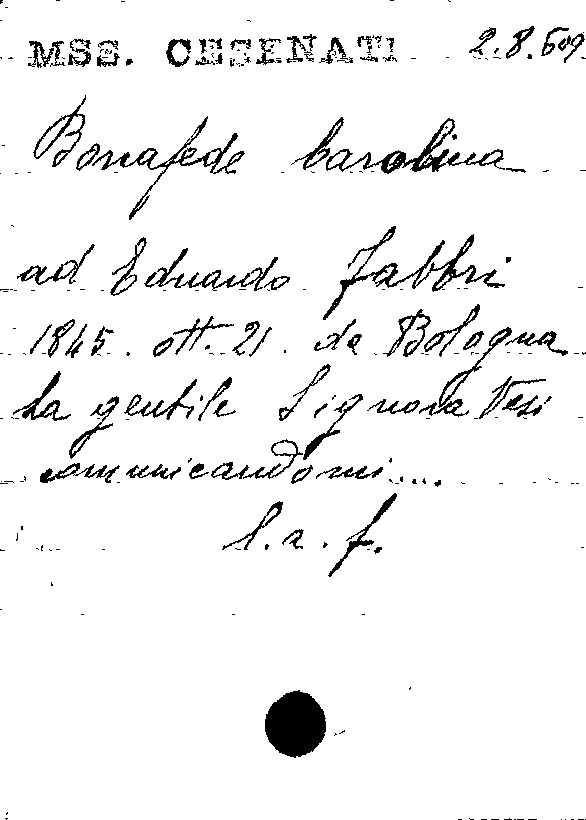 MSS. CESENATI 2.8.609
Bonafede Carolina
ad Eduardo Fabbri
1845. ott. 21. da Bologna
La gentile Signora Vesi
comunicandomi....
l. a. f.